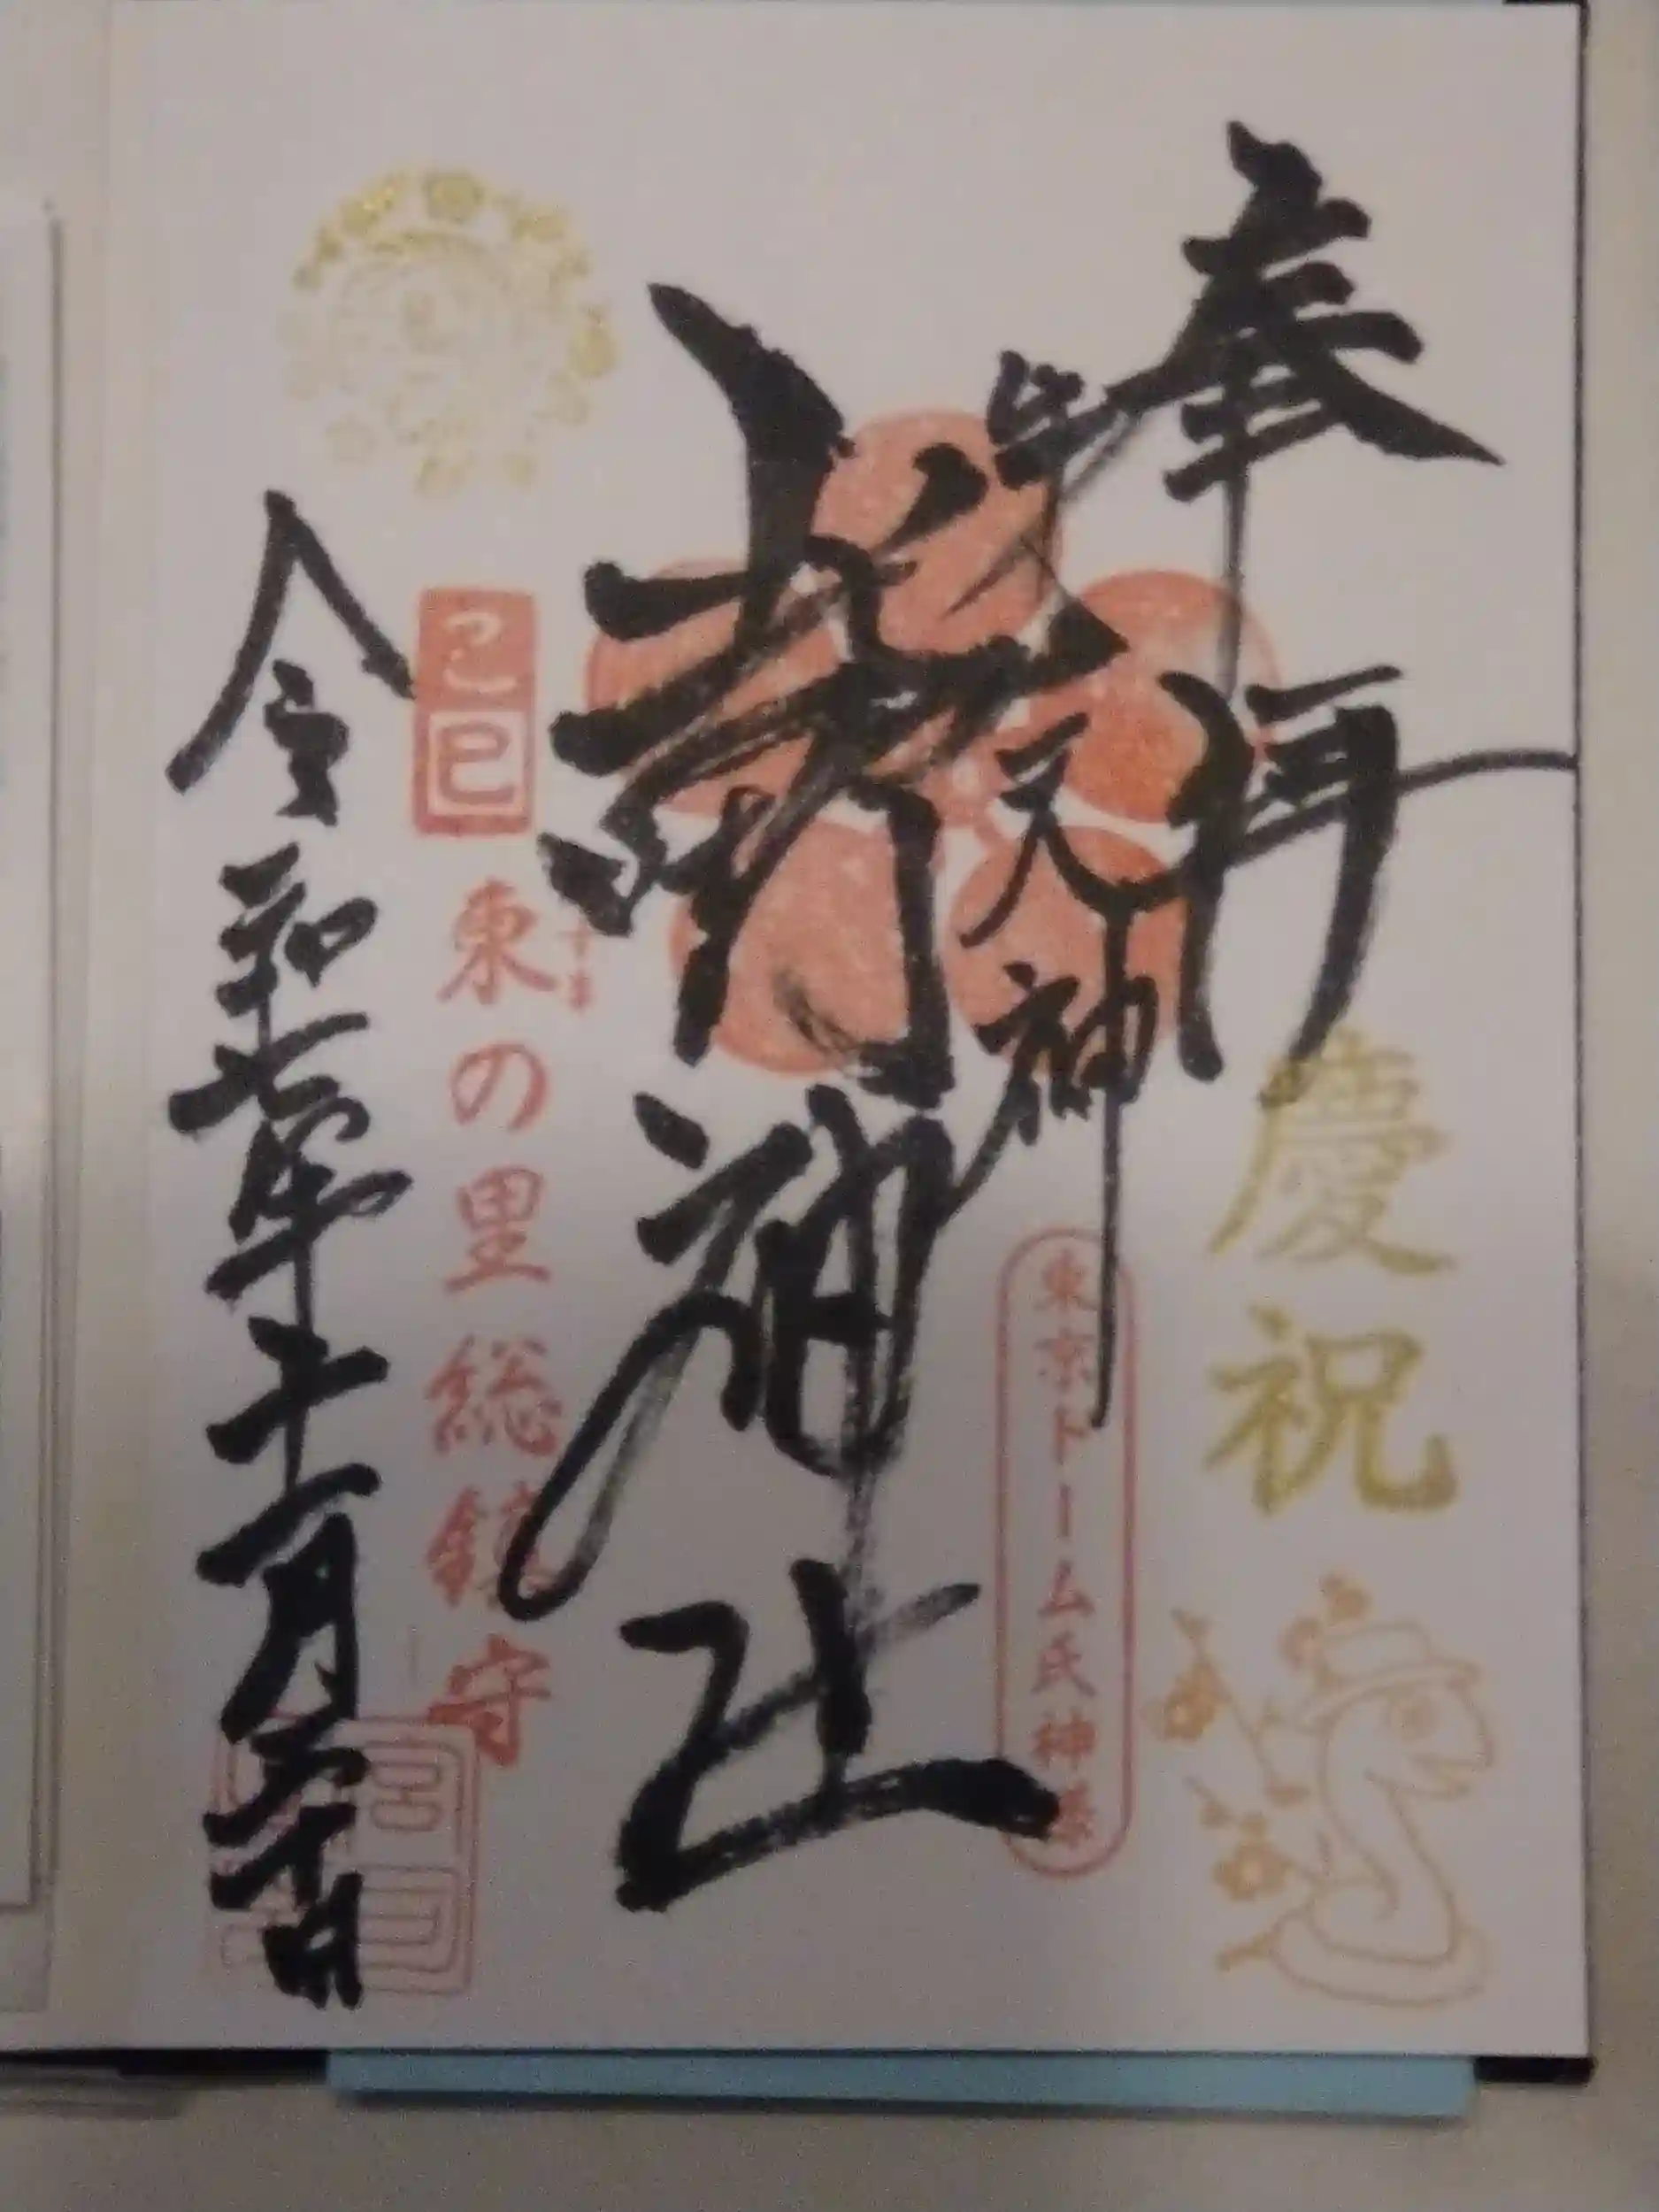 奉拝
慶祝
牛天神
東京ドーム氏神様
北野神社
巳
東の里総鎮守
令和七年十一月